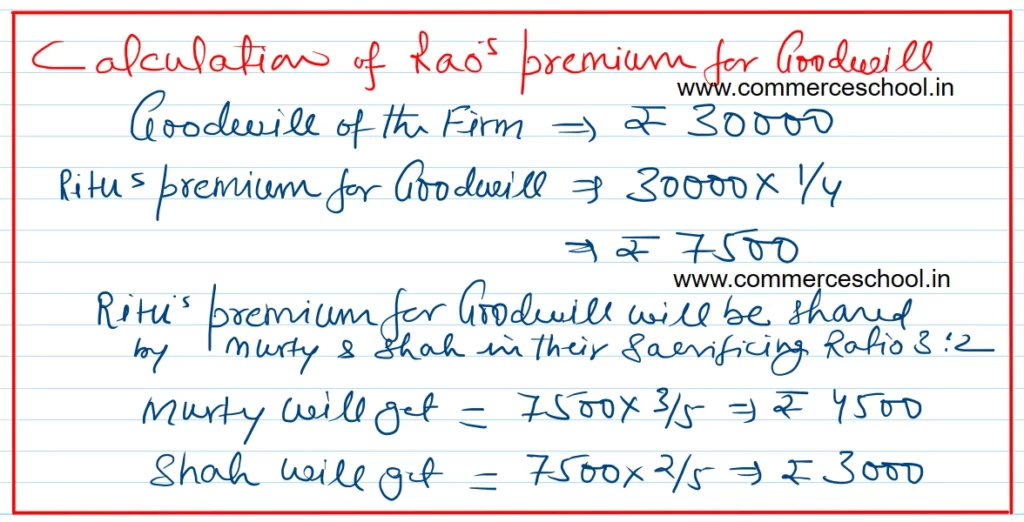 Calculation of Rao's premium for Goodwill
www.commerceschool.in
Goodwill of the Firm ⇒ ₹ 30000
Ritu's premium for Goodwill ⇒ 30000 x 1/4
⇒ ₹ 7500
www.commerceschool.in
Ritu's premium for Goodwill will be shared
by Murty & Shah in their Sacrificing Ratio 3:2
Murty will get = 7500 x 3/5 ⇒ ₹ 4500
Shah will get = 7500 x 2/5 ⇒ ₹ 3000